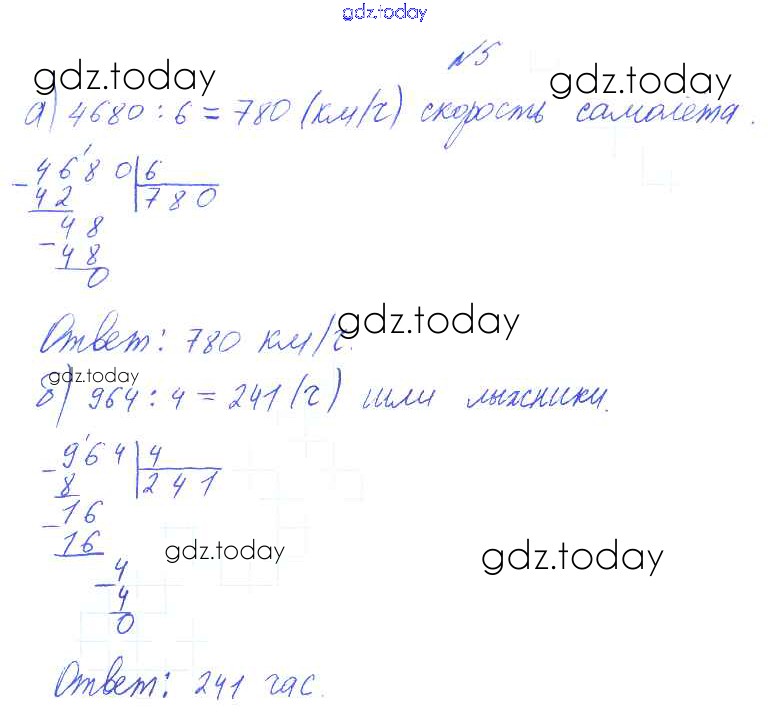 gdz.today
№5
gdz.today gdz.today
а) 4680 : 6 = 780 (км/ч) скорость самолёта.
- 4680 | 6
42 | 780
- 48
48
0
gdz.today
Ответ: 780 км/ч.
gdz.today
б) 964 : 4 = 241 (ч) шли лыжники.
- 964 | 4
8 | 241
- 16
16
gdz.today gdz.today
- 4
4
0
Ответ: 241 час.